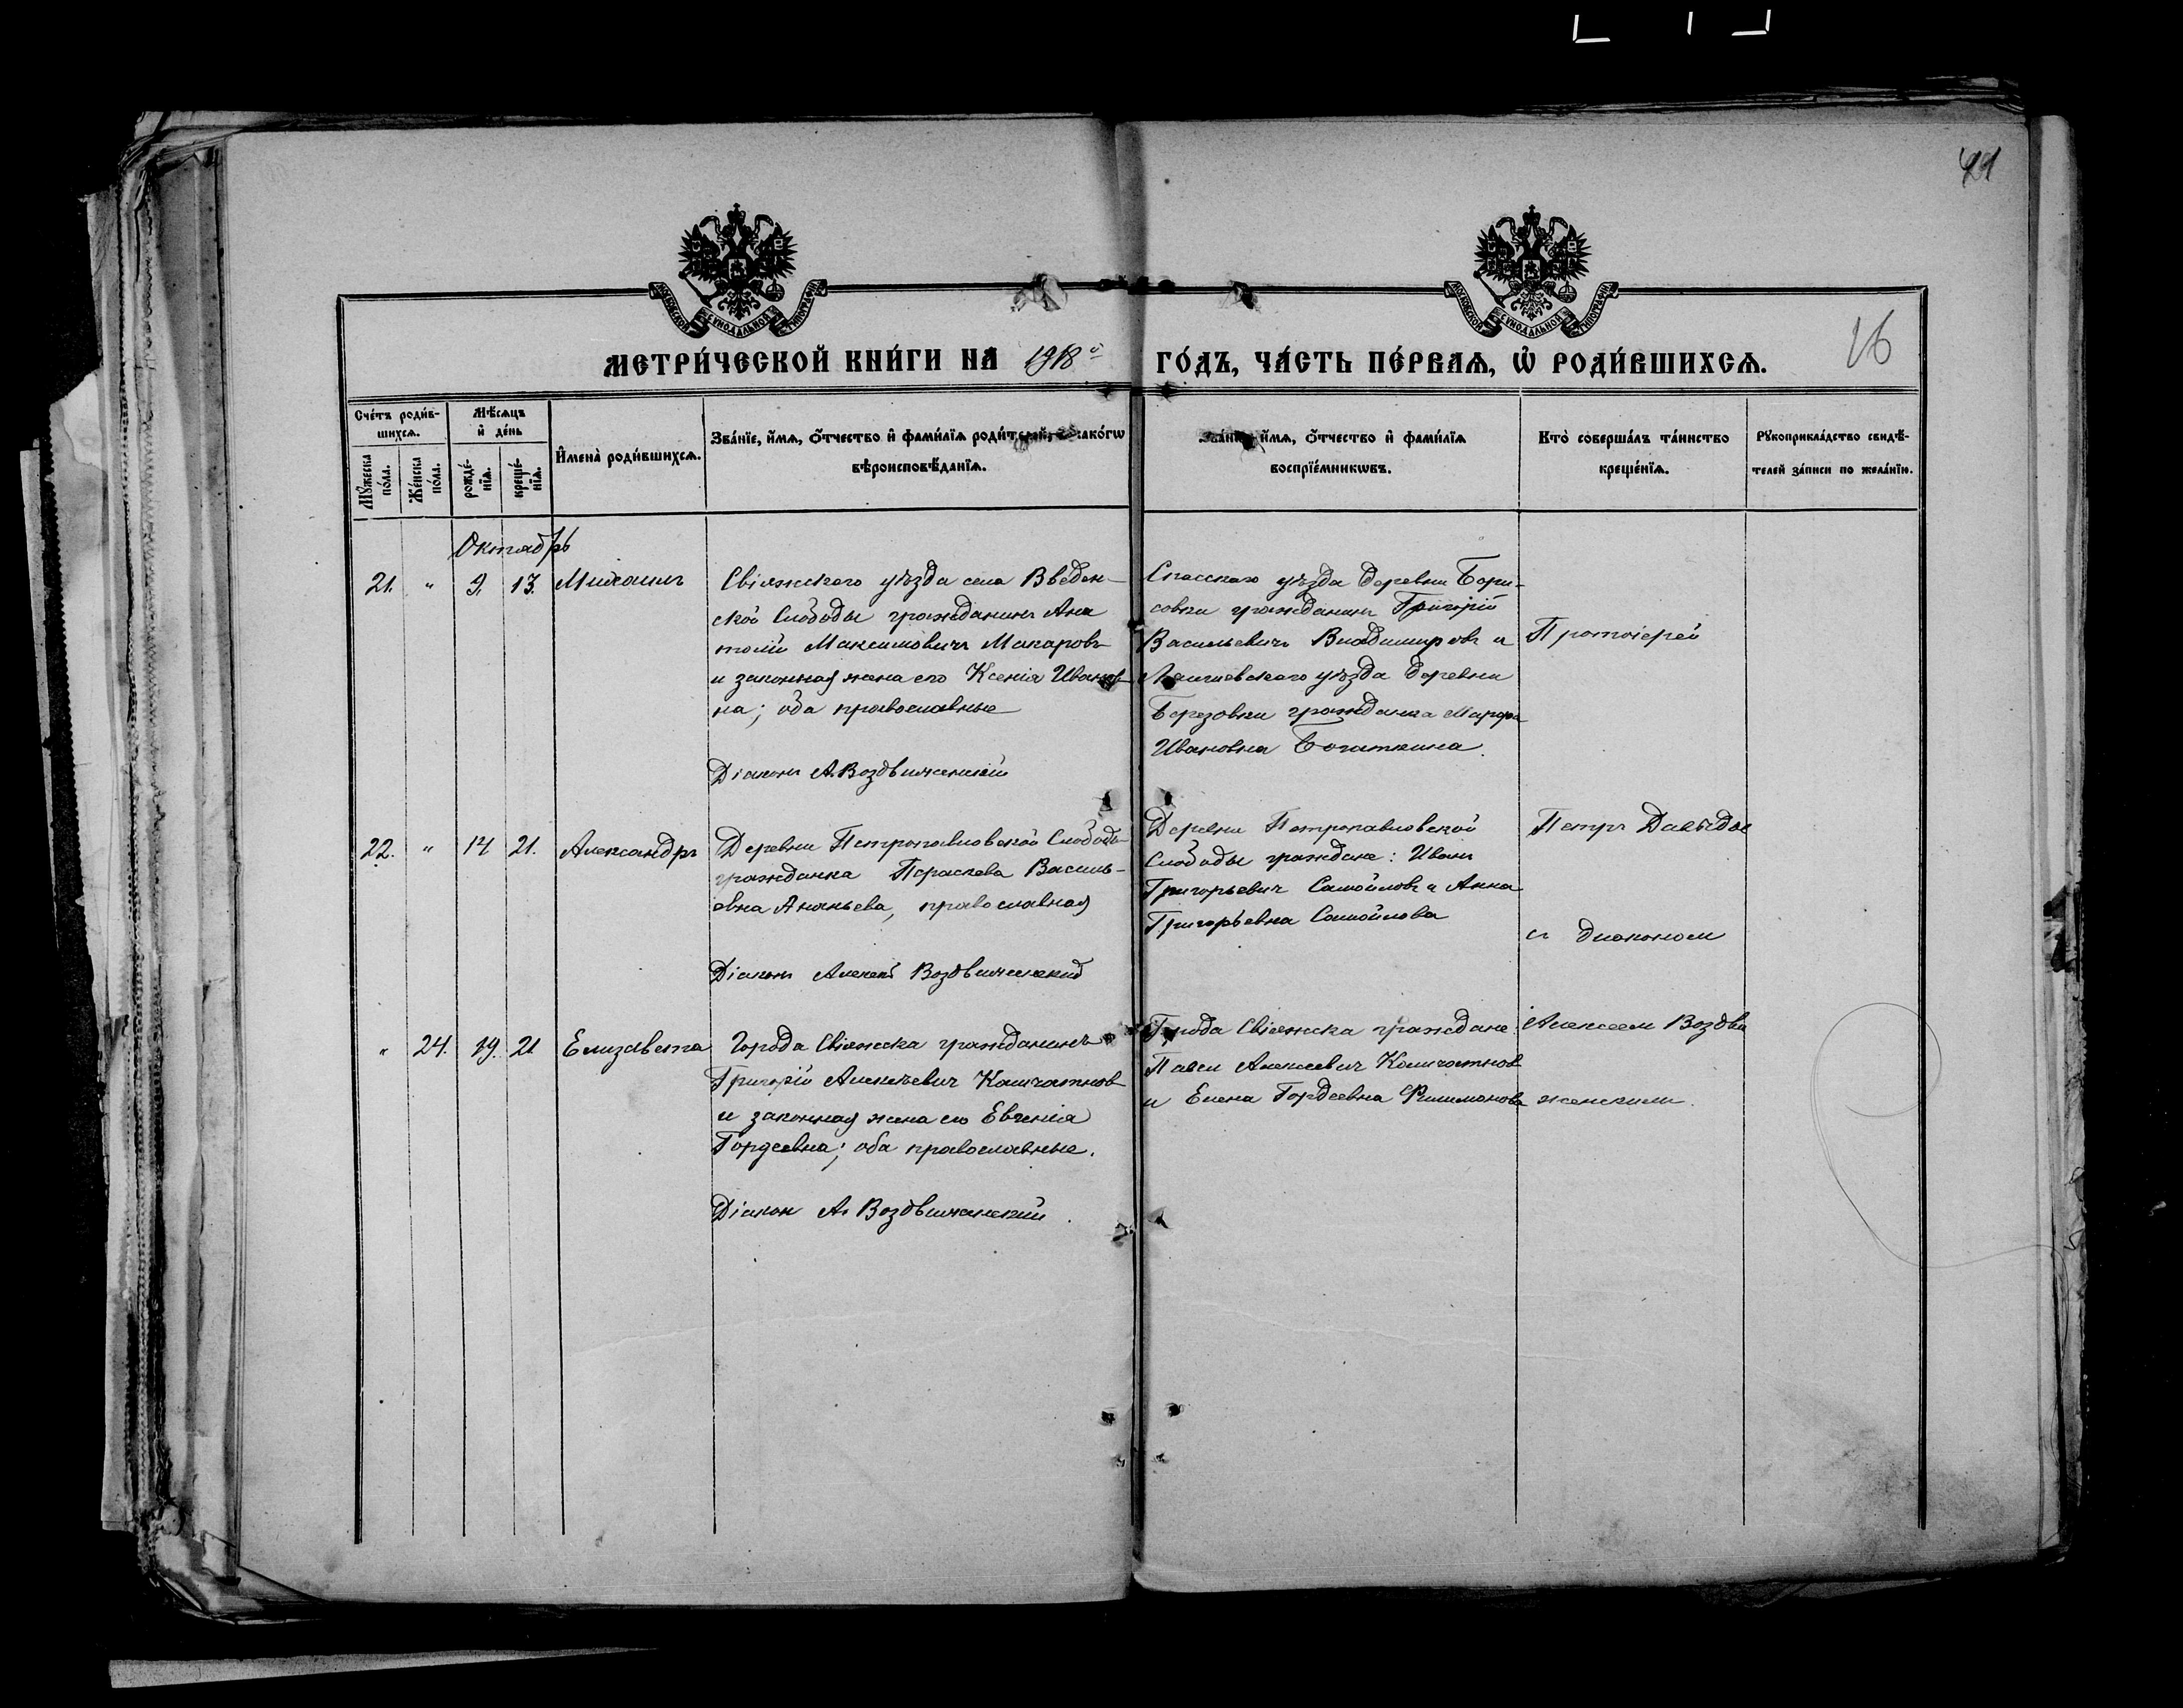 421
МОСКОВСКОЙ СѴНОДАЛЬНОЙ ТИПОГРАФІИ
МОСКОВСКОЙ СѴНОДАЛЬНОЙ ТИПОГРАФІИ
16
МЕТРИ́ЧЕСКОЙ КНИ́ГИ НА 1918й ГО́ДЪ, ЧА́СТЬ ПЕ́РВАѦ, Ѡ РОДИ́ВШИХСѦ.
Сче́тъ роди́в-
шихсѧ.
Мꙋ́жеска по́ла.
Же́нска по́ла.
Мѣ́сѧцъ
и҆ де́нь
рожде́-
нїѧ.
креще́-
нїѧ.
И҆мена̀ роди́вшихсѧ.
Зва́нїе, и҆́мѧ, о҆́тчество и҆ фами́лїѧ роди́телей, и҆ како́гѡ
вѣроисповѣ́данїѧ.
Зва́нїе, и҆́мѧ, о҆́тчество и҆ фами́лїѧ
воспрїе́мникѡвъ.
Кто̀ соверша́лъ та́инство
креще́нїѧ.
Рꙋкоприкла́дство свидѣ́-
телей за́писи по жела́нїю.
Октябрь
21. " 9. 13. Михаилъ
Свіяжскаго уѣзда села Введен-
ской Слободы гражданинъ Ана
толій Максимовичъ Макаровъ
и законная жена его Ксенія Иванов
на; оба православные
Діаконъ А. Воздвиженскій
Спасскаго уѣзда деревни Бори-
совки гражданинъ Григорій
Васильевичъ Владимировъ и
Лаишевскаго уѣзда деревни
Березовки гражданка Марфа
Ивановна Богаткина.
Протоіерей
22. " 14 21. Александръ
Деревни Петропавловской Слободы
гражданка Параскева Василь-
евна Ананьева, православная
Діаконъ Алексей Воздвиженский
Деревни Петропавловской
Слободы граждане: Иванъ
Григорьевичъ Самойловъ и Анна
Григорьевна Самойлова
Петръ Давыдов
съ диаконом
" 24. 19. 21 Елизавета
Города Свіяжска гражданинъ
Григорій Алексѣевич Камчатнов
и законная жена его Евгенія
Гордеевна; оба православные.
Діакон А. Воздвиженский.
Города Свіяжска граждане:
Павел Алексеевич Камчатнов
и Елена Гордеевна Филимонова
Алексеем Воздви
женским.